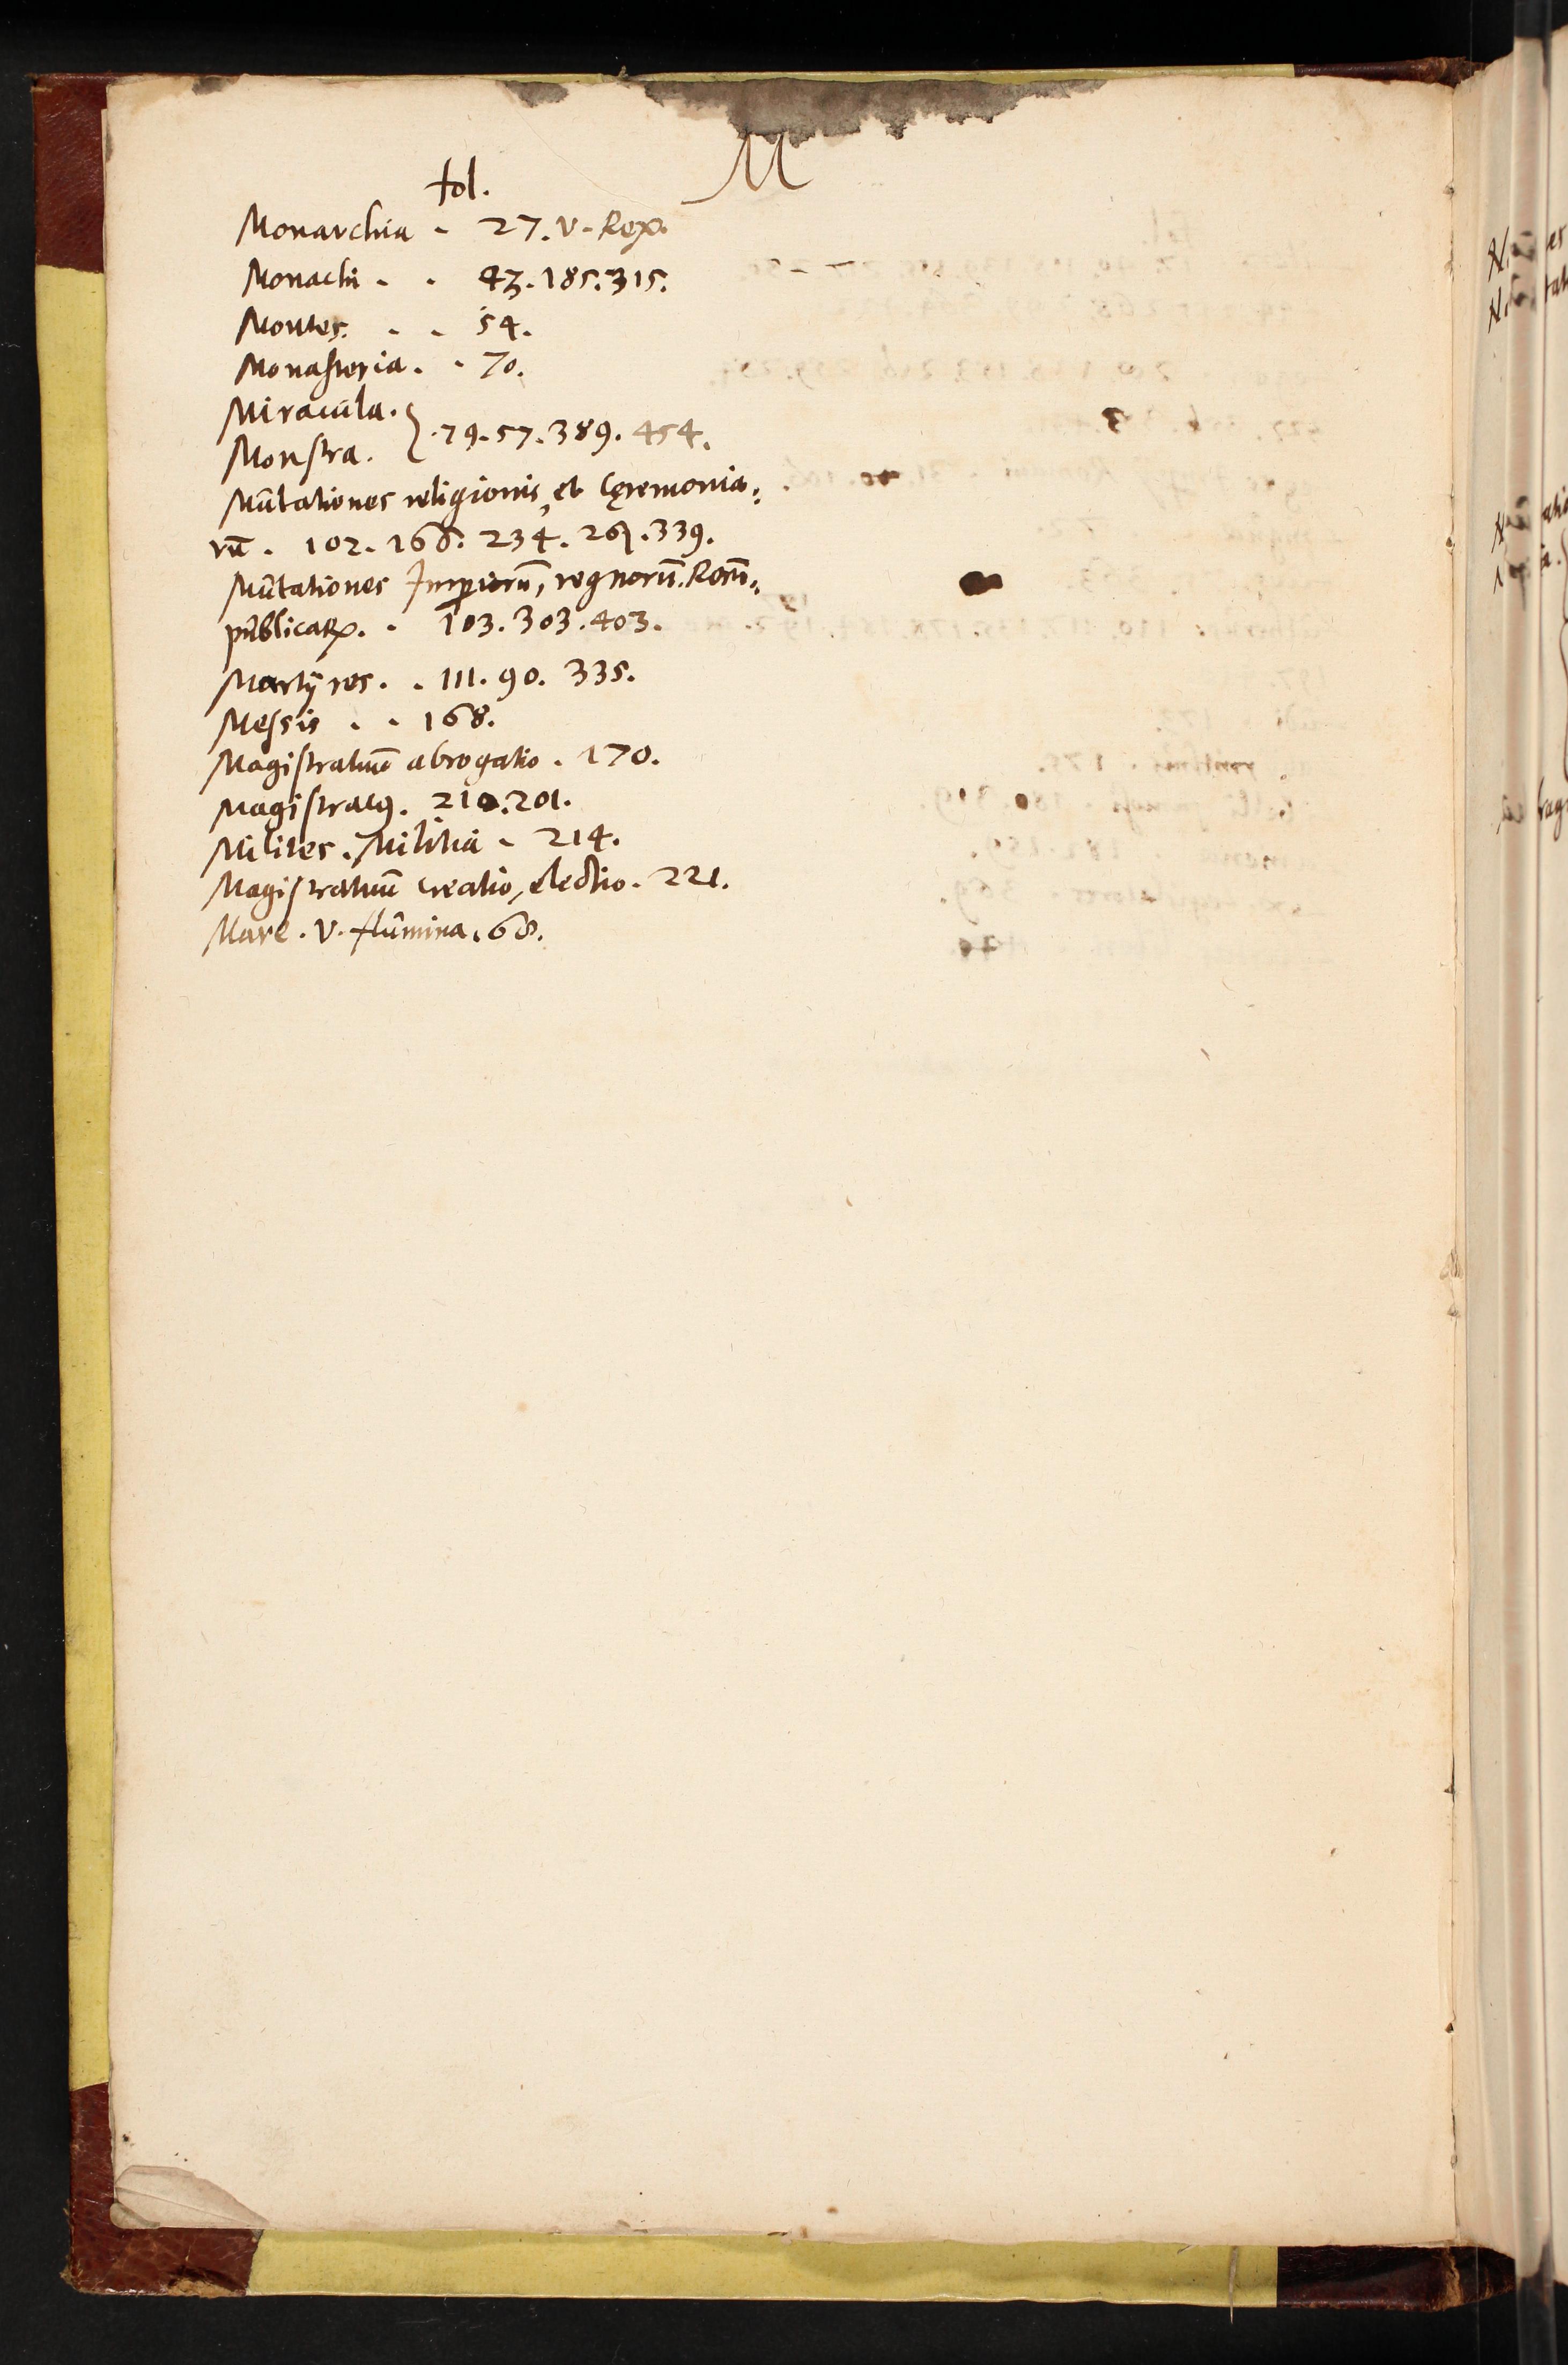 M
fol.
Monarchia - 27. v. Rex.
Monachi - . 43. 185. 315.
Montes. . . 54.
Monasteria. . 70.
Miracula. } . 79. 57. 389. 454.
Monstra.
Mûtationes religionis, et Cęremonia:
rū. 102. 166. 234. 267. 339.
Mûtationes Imperiorū, regnorū. Rerū:
pûblicaꝝ. . 103. 303. 403.
Martÿres. . 111. 90. 335.
Messis . . 168.
Magistratuū abrogatio. 170.
Magistratꝰ. 210. 201.
Milites. Militia - 214.
Magistratuū creatio, electio. 221.
Mare. v. flûmina. 68.